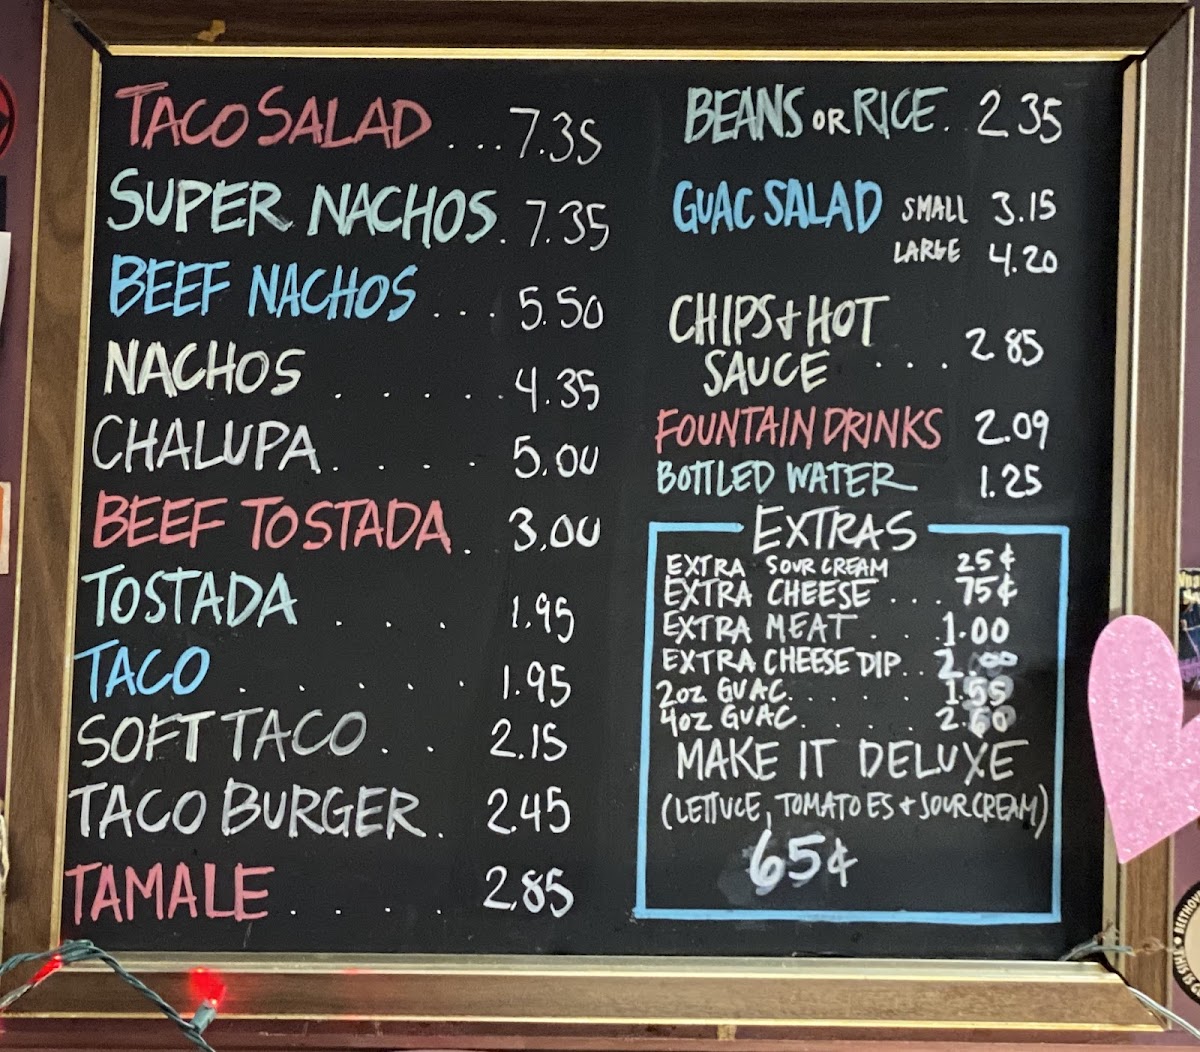 TACO SALAD ... 7.35
SUPER NACHOS . 7.35
BEEF NACHOS ... 5.50
NACHOS ..... 4.35
CHALUPA .... 5.00
BEEF TOSTADA . 3.00
TOSTADA ... 1.95
TACO ...... 1.95
SOFT TACO ... 2.15
TACO BURGER . 2.45
TAMALE .... 2.85
BEANS OR RICE .. 2 35
GUAC SALAD SMALL 3.15
LARGE 4.20
CHIPS + HOT
SAUCE .... 2 85
FOUNTAIN DRINKS 2.09
BOTTLED WATER 1.25
EXTRAS
EXTRA SOUR CREAM 25¢
EXTRA CHEESE ... 75¢
EXTRA MEAT ... 1.00
EXTRA CHEESE DIP .. 2.00
2oz GUAC ..... 1.55
4oz GUAC ..... 2.60
MAKE IT DELUXE
(LETTUCE, TOMATOES + SOUR CREAM)
65¢